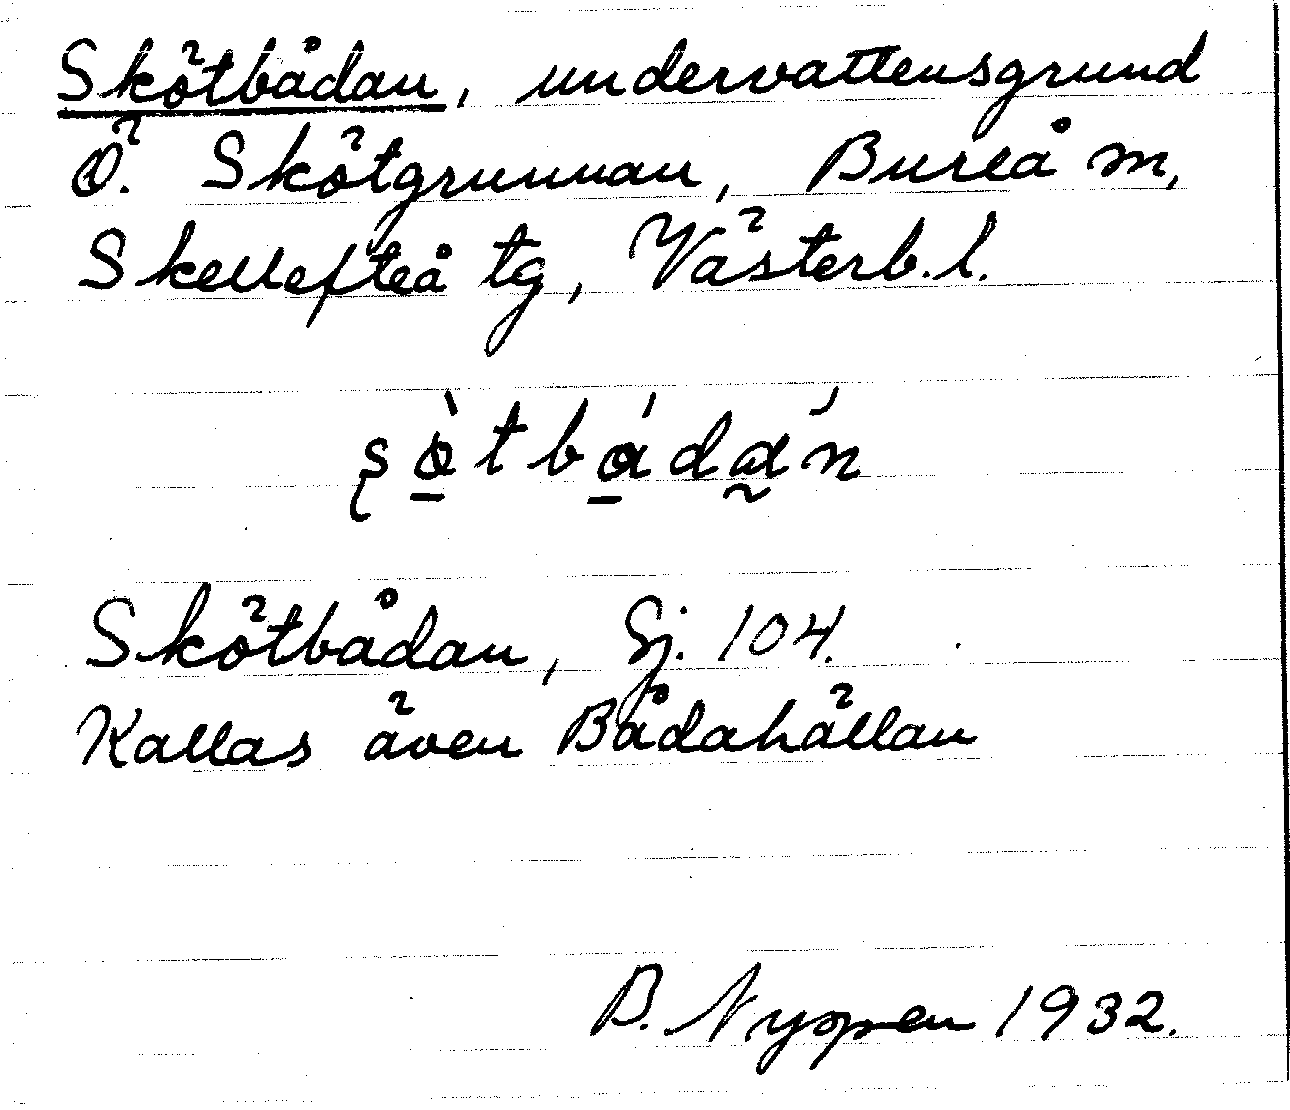 Skötbådan, undervattensgrund
Ö. Skötgrunnan, Bureå m,
Skellefteå tg, Västerb.l.
Skötbådan, Sj. 104.
Kallas även Bådahällan
B. Nyppen 1932.